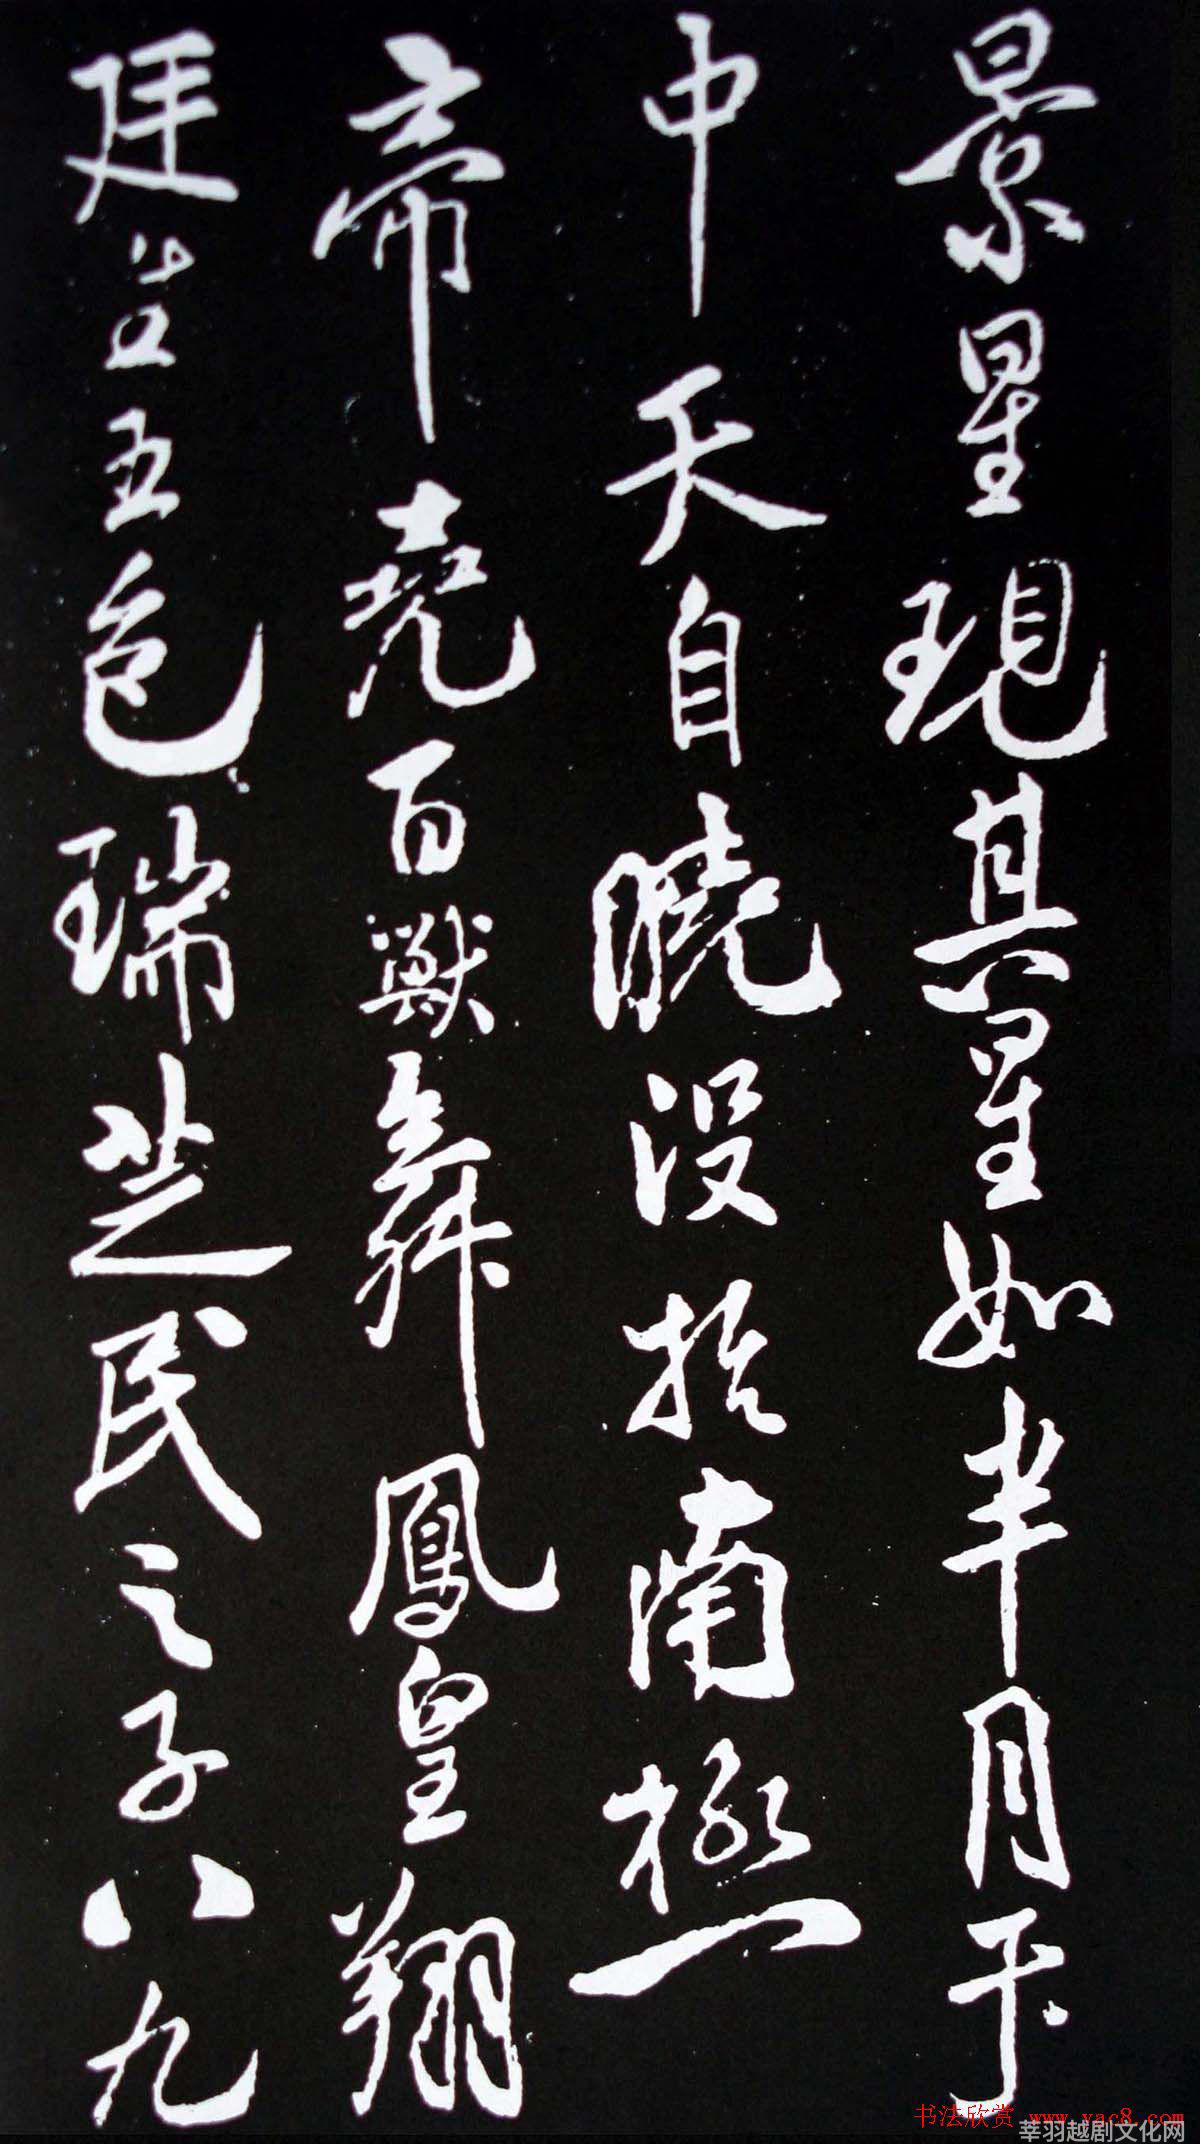 景星現其星如半月
中天自曉没於南極
帝堯百獸舞鳳皇翔
廷五色瑞芝民之子八九
书法欣赏 www.yac8.com
莘羽越剧文化网